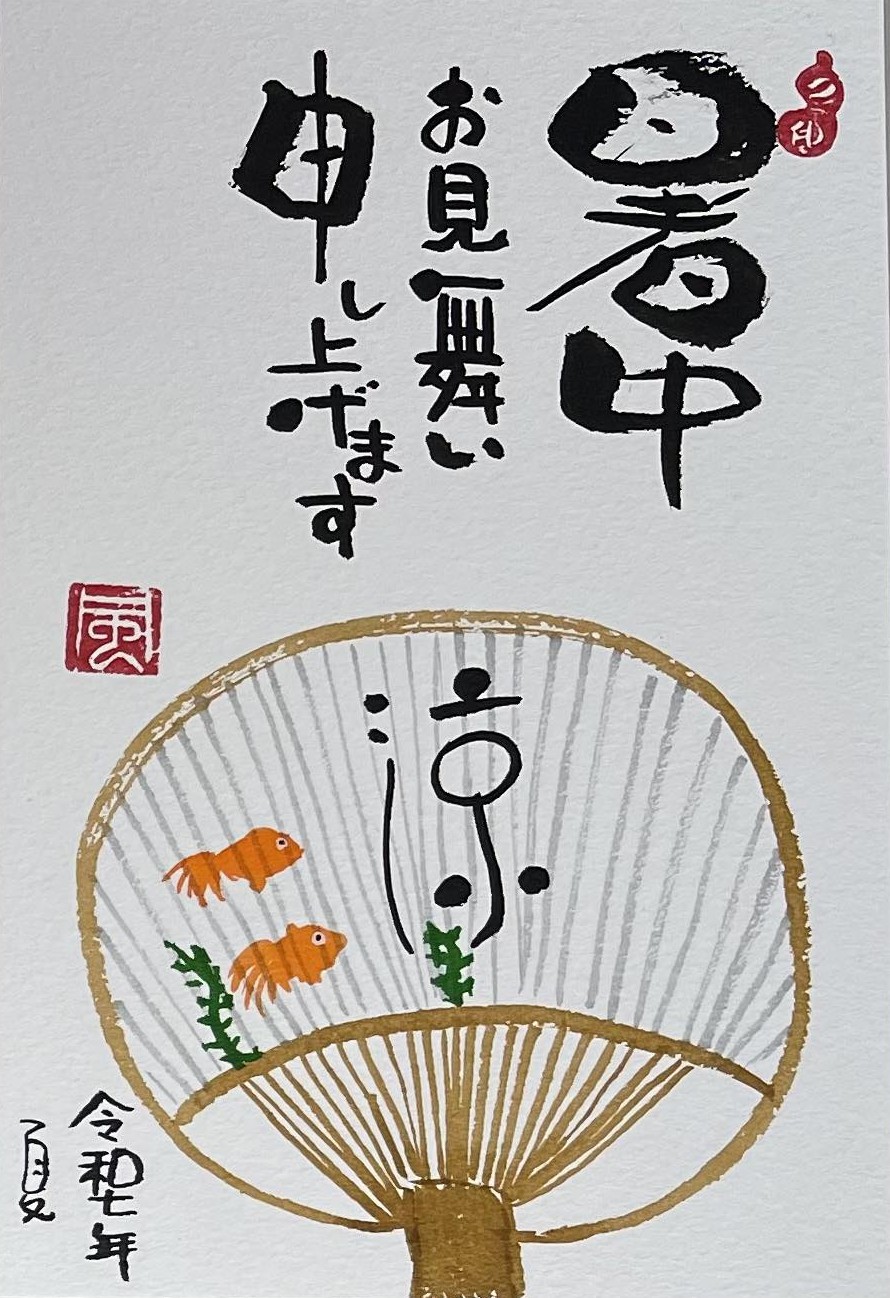 暑中
お見舞い
申し上げます
涼
風
令和七年
夏